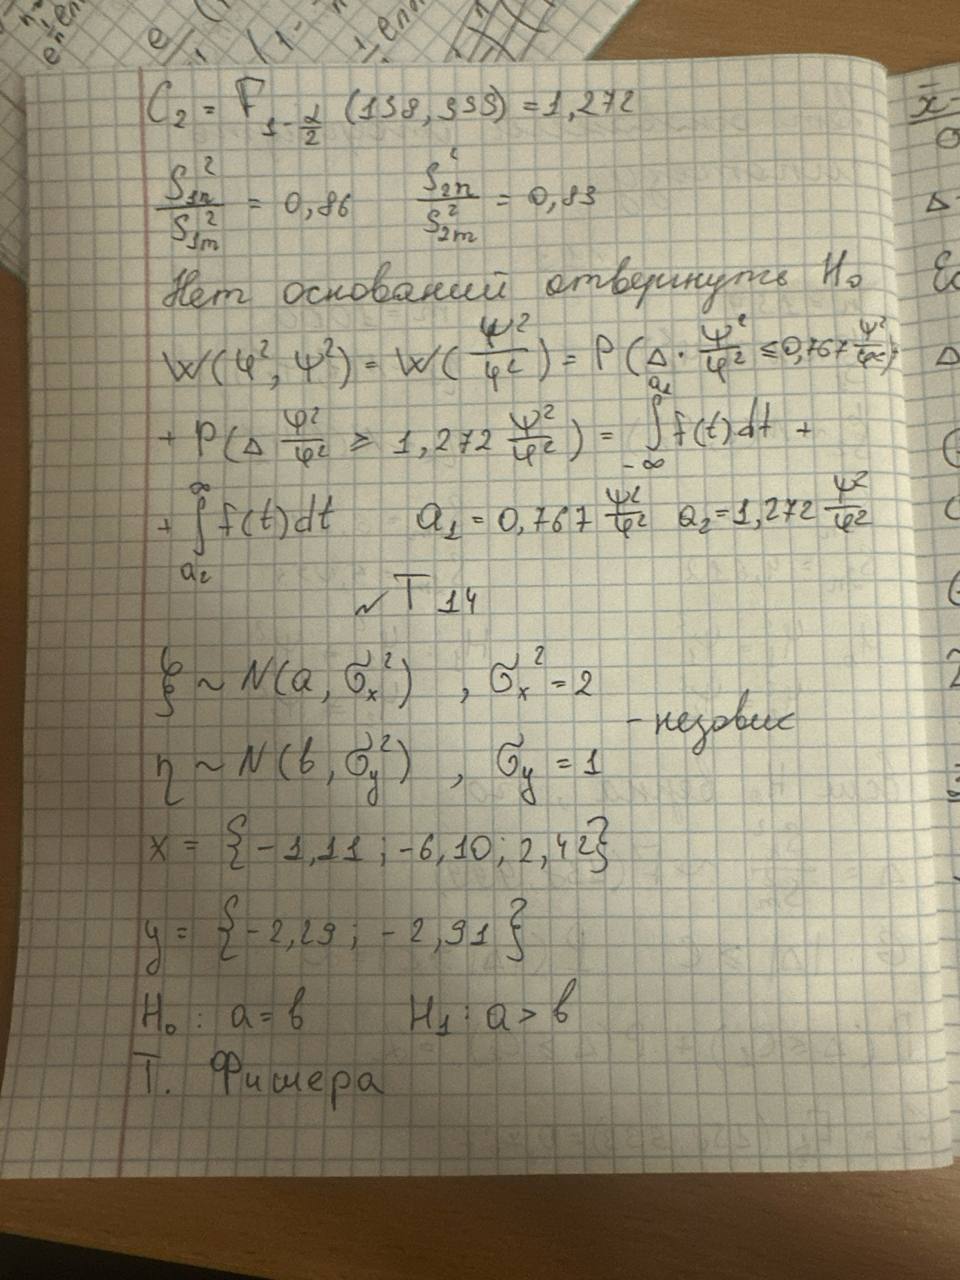 C₂ = F_{1-α/2} (198, 999) = 1,272
S²₁ₙ/S²₁ₘ = 0,86 S²₂ₙ/S²₂ₘ = 0,83
Нет оснований отвергнуть H₀
W(φ², ψ²) = W(ψ²/φ²) = P(Δ · ψ²/φ² ≤ 0,767 ψ²/φ²)
+ P(Δ ψ²/φ² ≥ 1,272 ψ²/φ²) = ∫_{-∞}^{a₁} f(t)dt +
+ ∫_{a₂}^{∞} f(t)dt a₁ = 0,767 ψ²/φ² a₂ = 1,272 ψ²/φ²
~ T 14
ξ ~ N(a, σₓ²) , σₓ² = 2
- независ
η ~ N(b, σ_y²) , σ_y = 1
x = {-1,11 ; -6,10 ; 2,42}
y = {-2,29 ; -2,91}
H₀ : a = b H₁ : a > b
Т. Фишера